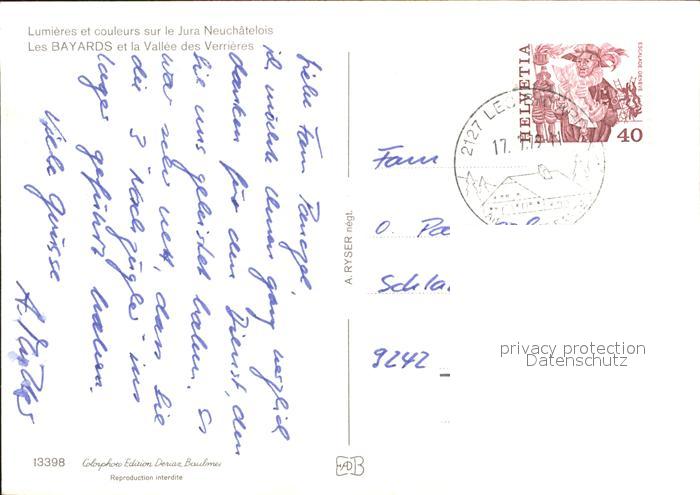 Lumières et couleurs sur le Jura Neuchâtelois
Les BAYARDS et la Vallée des Verrières
Liebe Fam
ich möchte Ihnen ganz herzlich
danken für den Dienst, den
Sie uns geleistet haben. Es
war sehr nett, dass Sie
die 3 Nachzügler ins
Lager geführt haben.
Viele Grüsse
A.
A. RYSER négt.
HELVETIA
ESCALADE GENÈVE
40
2127 LES
17.
Fam
O. Pa
Schla
9242
privacy protection
Datenschutz
13398 Colorphoto Edition Deriaz Baulmes
Reproduction interdite